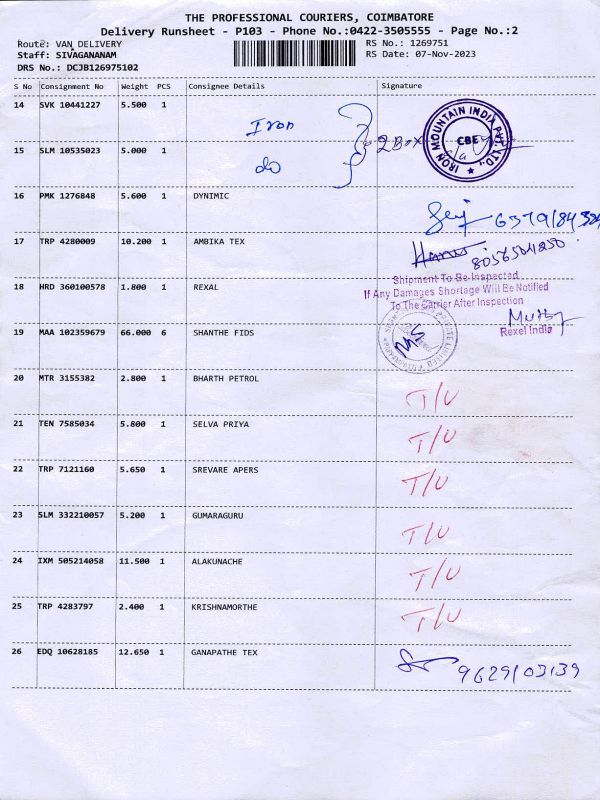 THE PROFESSIONAL COURIERS, COIMBATORE
Delivery Runsheet - P103 - Phone No.:0422-3505555 - Page No.:2
Route: VAN DELIVERY RS No.: 1269751
Staff: SIVAGANANAM RS Date: 07-Nov-2023
DRS No.: DCJB126975102
S No Consignment No Weight PCS Consignee Details Signature
14 SVK 10441227 5.500 1 Iron
15 SLM 10535023 5.000 1 do 2 Box
IRON MOUNTAIN INDIA PVT. LTD.,
CBE
16 PMK 1276848 5.600 1 DYNIMIC
17 TRP 4280009 10.200 1 AMBIKA TEX
8056504250
18 HRD 360100578 1.800 1 REXAL
Shipment To Be Inspected
If Any Damages Shortage Will Be Notified
To The Carrier After Inspection
Rexel India
19 MAA 102359679 66.000 6 SHANTHE FIDS
20 MTR 3155382 2.800 1 BHARTH PETROL T/U
21 TEN 7585034 5.800 1 SELVA PRIYA T/U
22 TRP 7121160 5.650 1 SREVARE APERS T/U
23 SLM 332210057 5.200 1 GUMARAGURU T/U
24 IXM 505214058 11.500 1 ALAKUNACHE T/U
25 TRP 4283797 2.400 1 KRISHNAMORTHE T/U
26 EDQ 10628185 12.650 1 GANAPATHE TEX 9629103139